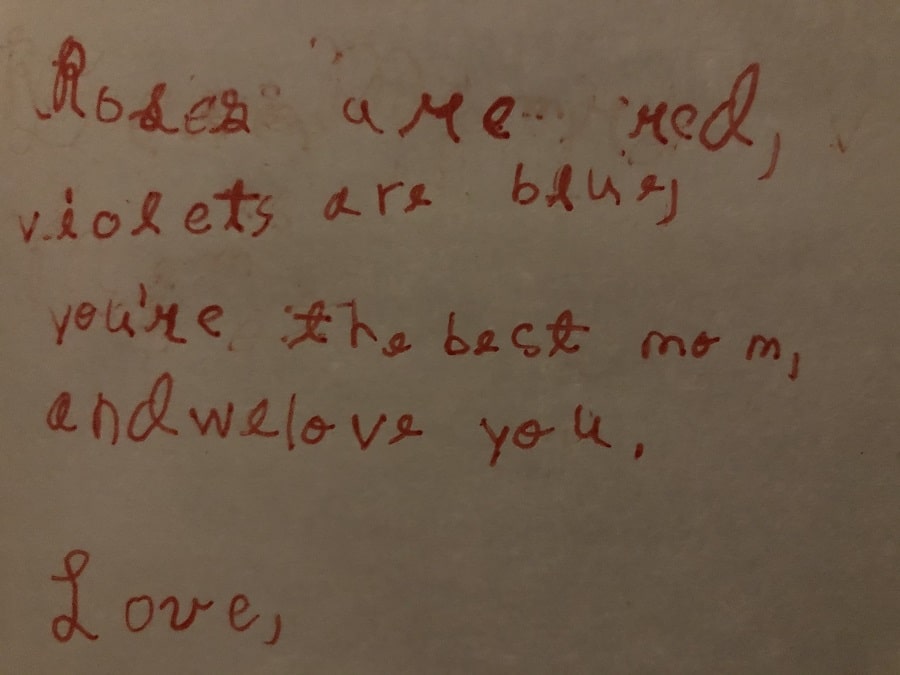 Roses are red,
violets are blue,
you're the best mom,
and we love you.
Love,